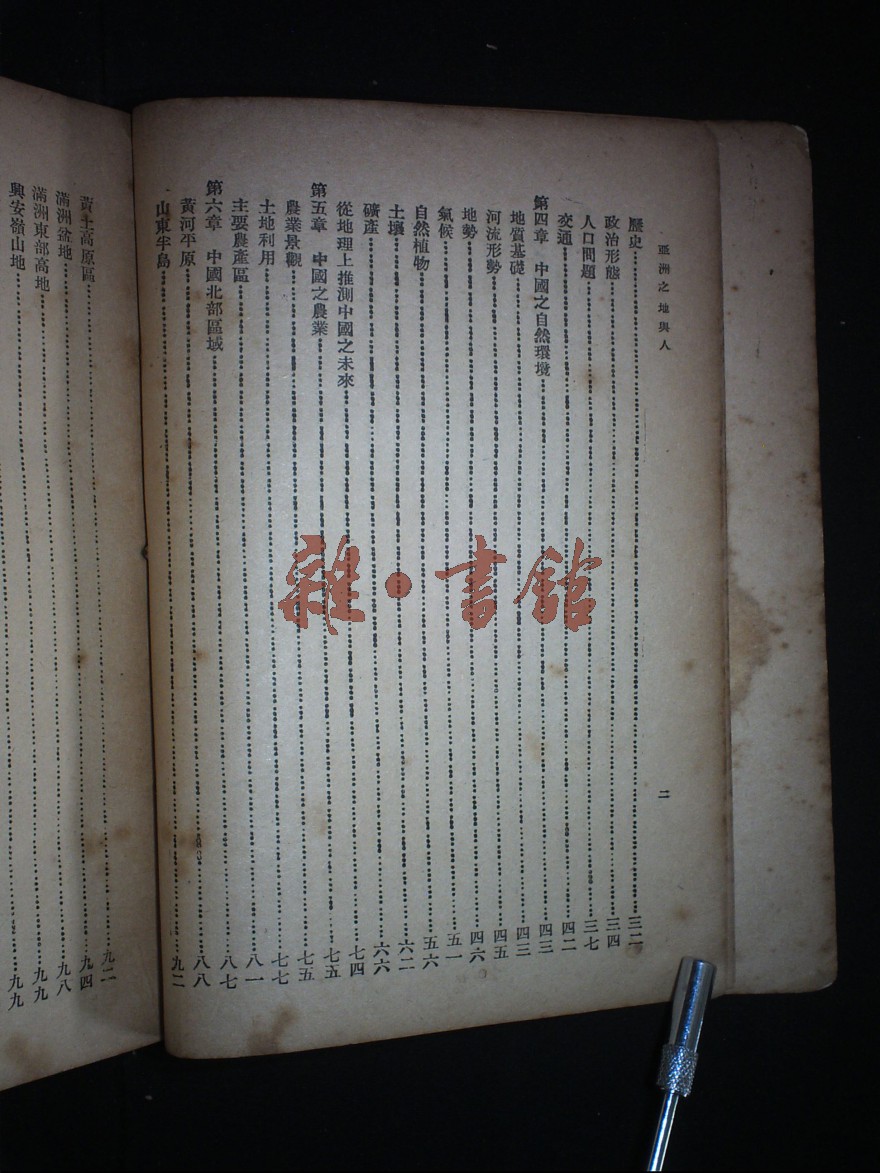 亞洲之地與人 二
歷史……三二
政治形態……三四
人口問題……三七
交通……四二
第四章 中國之自然環境……四三
地質基礎……四三
河流形勢……四五
地勢……四六
氣候……五一
自然植物……五六
土壤……六二
礦產……六六
從地理上推測中國之未來……七四
第五章 中國之農業……七五
農業景觀……七五
土地利用……七七
主要農產區……八一
第六章 中國北部區域……八七
黃河平原……八八
山東半島……九二
黃土高原區……九二
滿洲盆地……九四
滿洲東部高地……九八
興安嶺山地……九九
九九
雜·書館